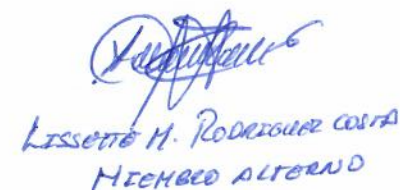 LISSETTE M. RODRIGUEZ COSTA
MIEMBRO ALTERNO